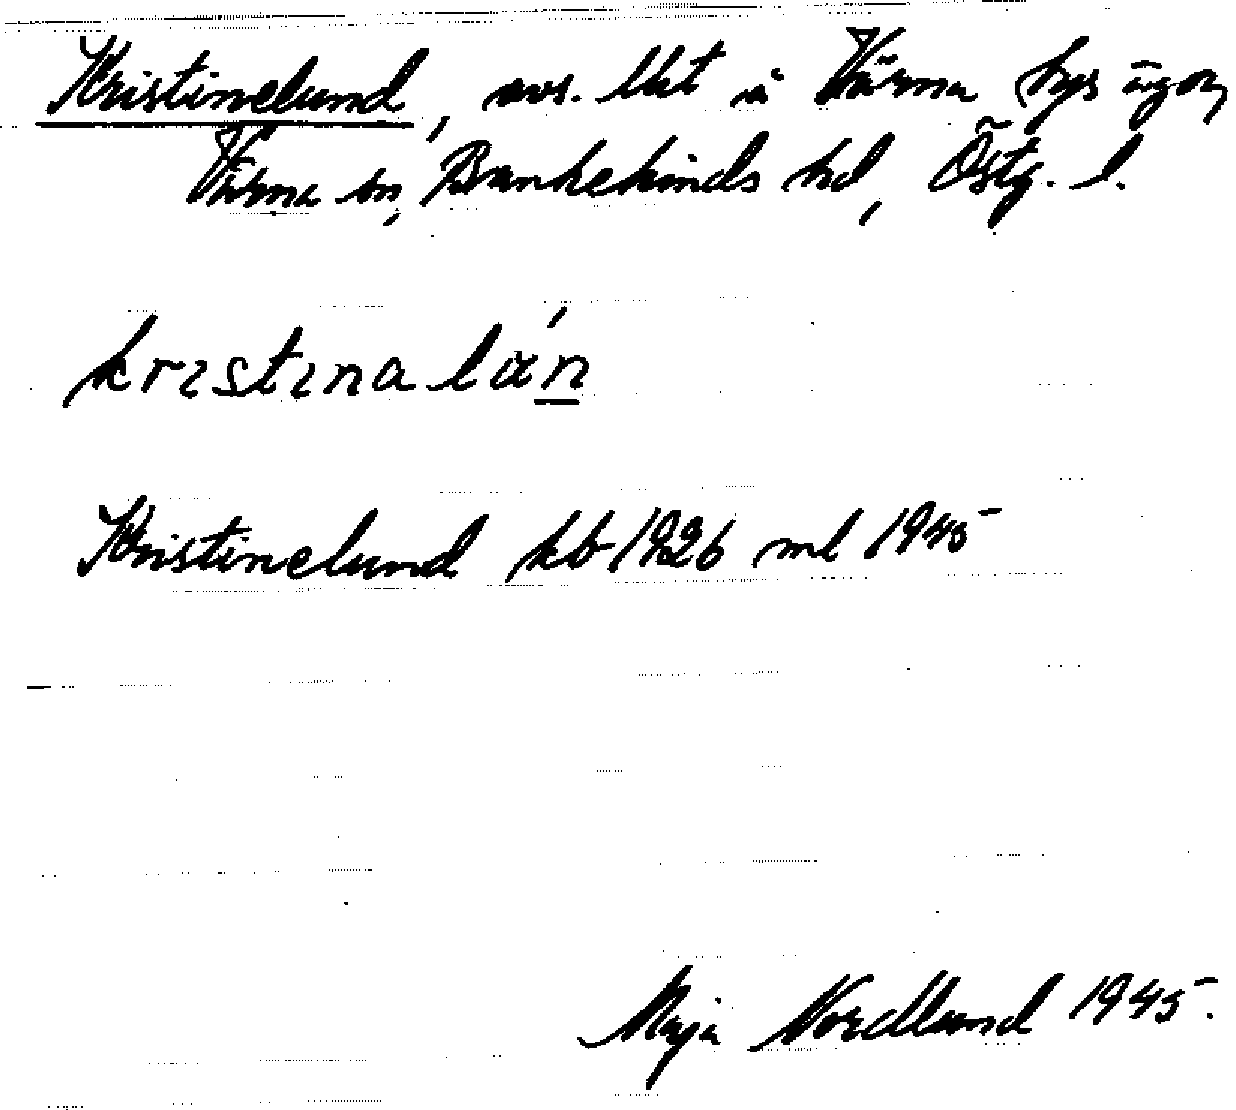 Kristinelund, avs. lht å Värna bys ägor,
Värna sn, Bankekinds hd, Östg. l.
kristinaláṉ
Kristinelund kb 1926 ml 1945
Maja Nordlund 1945.